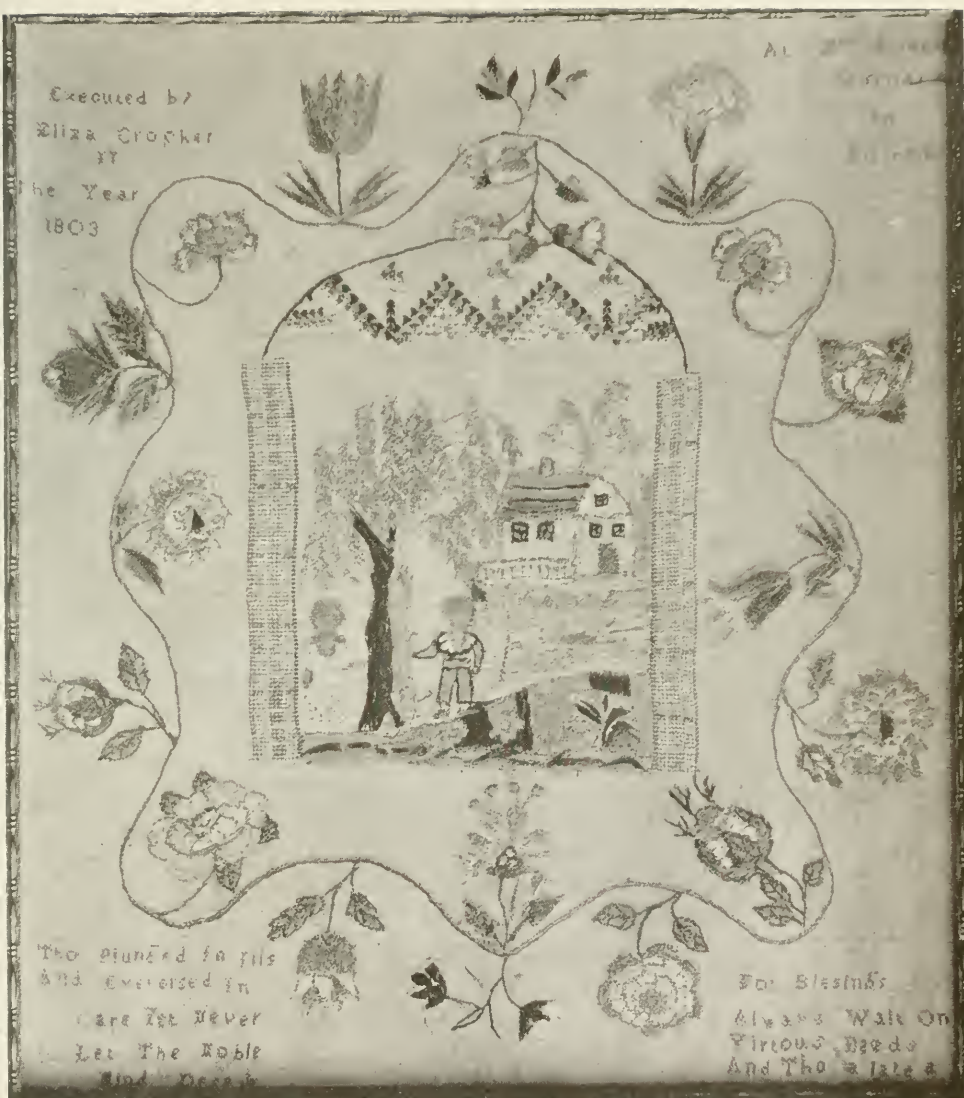 Executed by
Eliza Cropher
The Year
1803
At
In
Tho Plunged In Ills
And Exercised In
Care Yet Never
Let The Noble
Mind
For Blesings
Always Wait On
Virtous Deeds
And Tho a late a